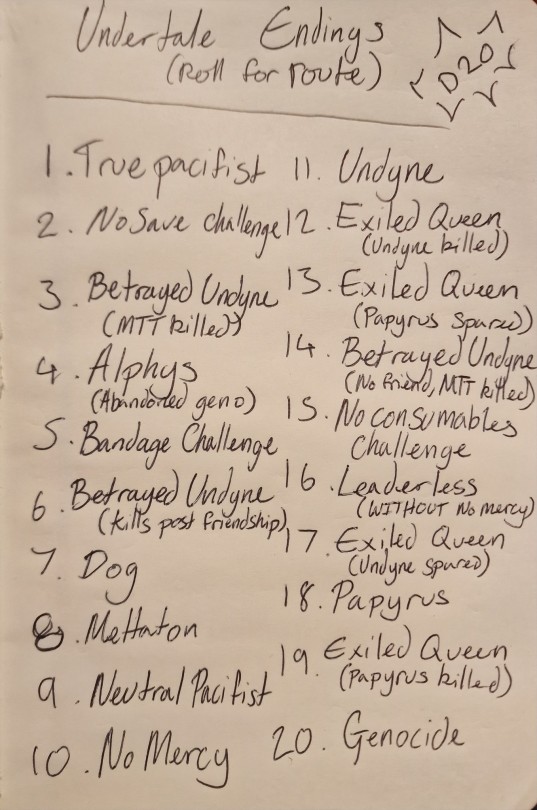 Undertale Endings
(Roll for route)
D20
1. True pacifist
2. No Save challenge
3. Betrayed Undyne
(MTT killed)
4. Alphys
(Abandoned geno)
5. Bandage Challenge
6. Betrayed Undyne
(kills post friendship)
7. Dog
8. Mettaton
9. Neutral Pacifist
10. No Mercy
11. Undyne
12. Exiled Queen
(Undyne killed)
13. Exiled Queen
(Papyrus Spared)
14. Betrayed Undyne
(No friend, MTT killed)
15. No consumables
Challenge
16. Leaderless
(WITHOUT No mercy)
17. Exiled Queen
(Undyne spared)
18. Papyrus
19. Exiled Queen
(Papyrus killed)
20. Genocide